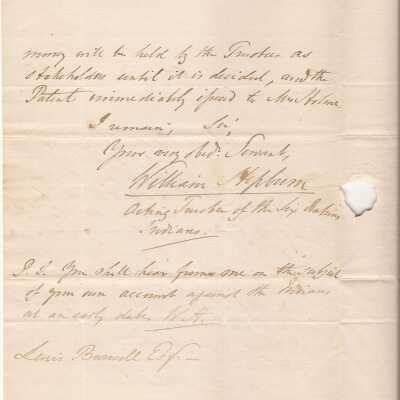 money will be held by the Trustees as
stakeholders until it is decided, and the
Patent immediately issued to Mrs
I remain, Sir,
Your very obedt. Servant,
William Hepburn
Acting Trustee of the Six Nations
Indians.
P.S. You shall hear from me on the subject
of your own account against the Indians
at an early date. W.H.
Lewis Burwell Esq.